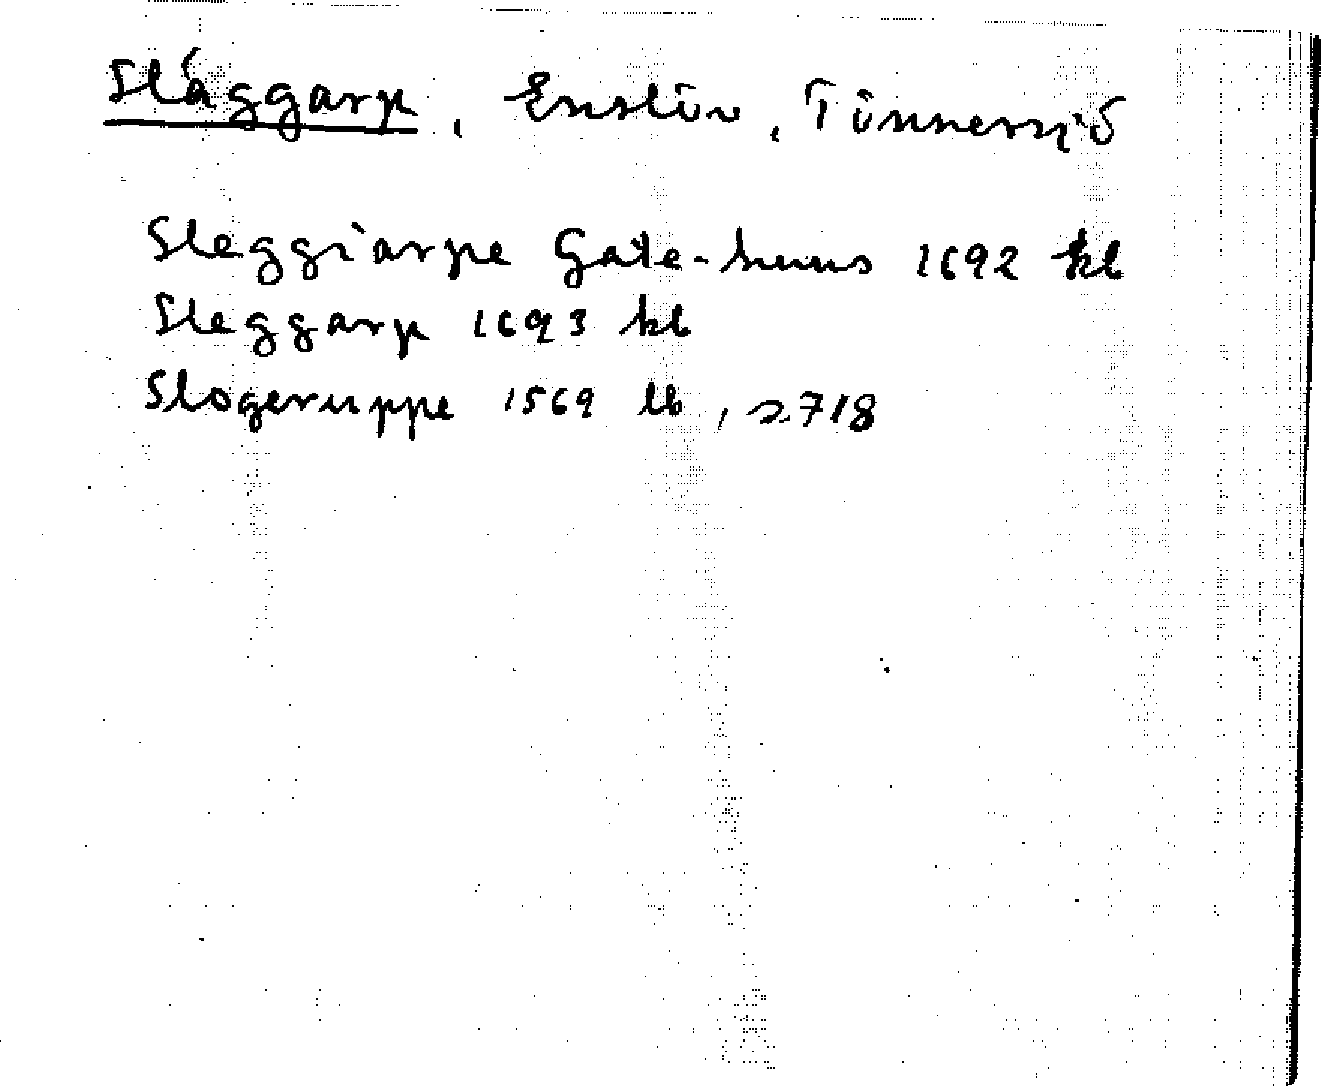 Släggarp, Enslöv, Tönnersjö
Sleggiarpe Gate-huus 1692 kb
Sleggarp 1693 kb
Slogeruppe 1569 lb, s 718